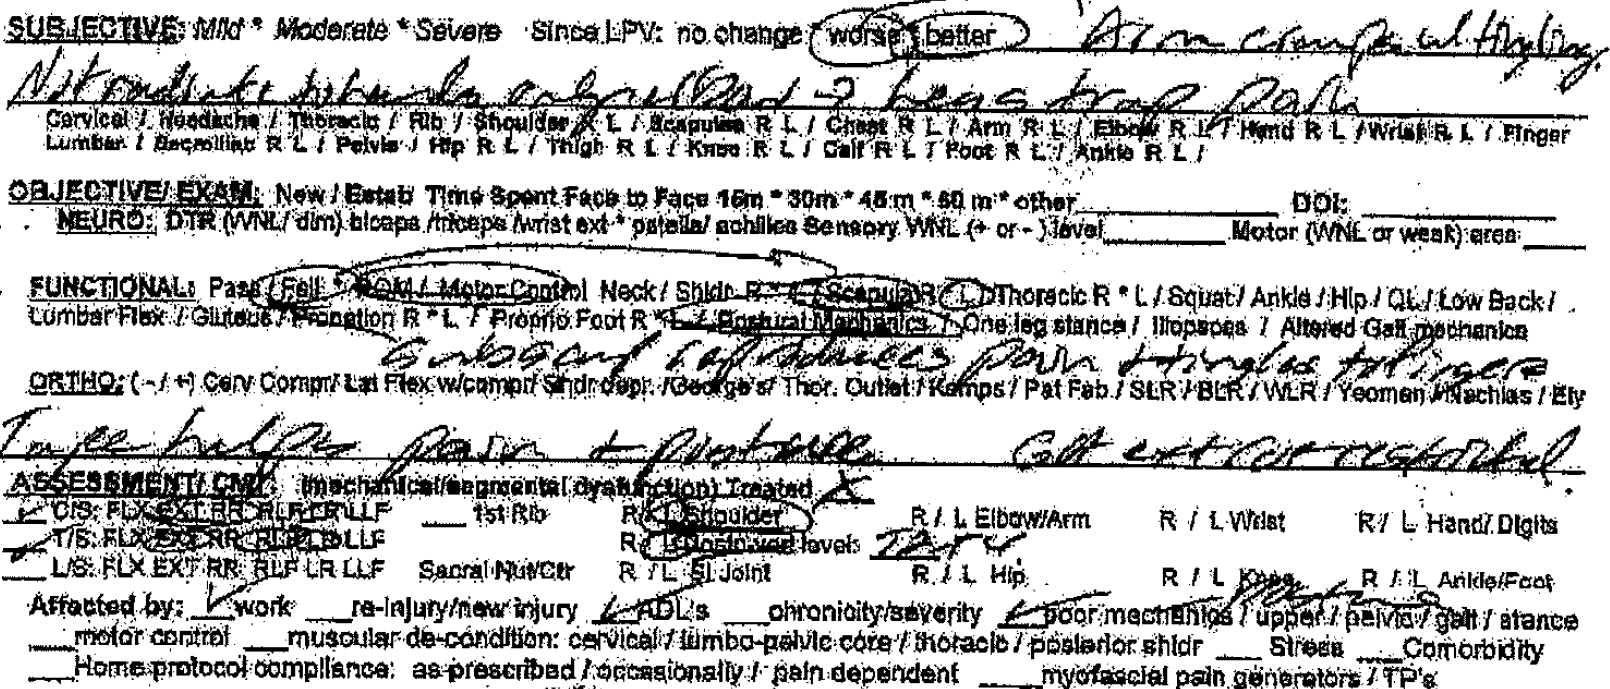 SUBJECTIVE: Mild * Moderate * Severe Since LPV: no change / worse / better Arm cramps tingling
Not radiate hands only pain
Cervical / Headache / Thoracic / Rib / Shoulder R L / Scapulae R L / Chest R L / Arm R L / Elbow R L / Hand R L / Wrist R L / Finger
Lumbar / Sacroiliac R L / Pelvis / Hip R L / Thigh R L / Knee R L / Calf R L / Foot R L / Ankle R L /
OBJECTIVE/ EXAM: New / Estab Time Spent Face to Face 15m * 30m * 45 m * 60 m * other DOI:
NEURO: DTR (WNL/ dim) biceps /triceps /wrist ext * patella/ achilles Sensory WNL (+ or - ) level Motor (WNL or weak) area
FUNCTIONAL: Pass / Fail * ROM / Motor Control Neck / Shldr R * L / Scapula R / L Thoracic R * L / Squat / Ankle / Hip / QL / Low Back /
Lumbar Flex / Gluteus / Pronation R * L / Proprio Foot R * L / Postural Mechanics / One leg stance / Illopsoas / Altered Gait mechanics
subscap reproduces pain + tingles to fingers
ORTHO: ( - / +) Cerv Compr/ Lat Flex w/compr/ Shdr depr. /George's/ Thor. Outlet / Kemps / Pat Fab / SLR / BLR / WLR / Yeoman / Nachlas / Ely
helps pain + posture ext rot restricted
ASSESSMENT/ CMT: (mechanical/segmental dysfunction) Treated X
C/S: FLX EXT RR RLF LR LLF 1st Rib R / L Shoulder R / L Elbow/Arm R / L Wrist R / L Hand/ Digits
T/S: FLX EXT RR RLF LR LLF R / L levels
L/S: FLX EXT RR RLF LR LLF Sacral Nut/Ctr R / L SI Joint R / L Hip R / L Knee R / L Ankle/Foot
Affected by: work re-injury/new injury ADL's chronicity/severity poor mechanics / upper / pelvic / gait / stance
motor control muscular de-condition: cervical / lumbo-pelvic core / thoracic / posterior shldr Stress Comorbidity
Home protocol compliance: as prescribed / occasionally / pain dependent myofascial pain generators / TP's